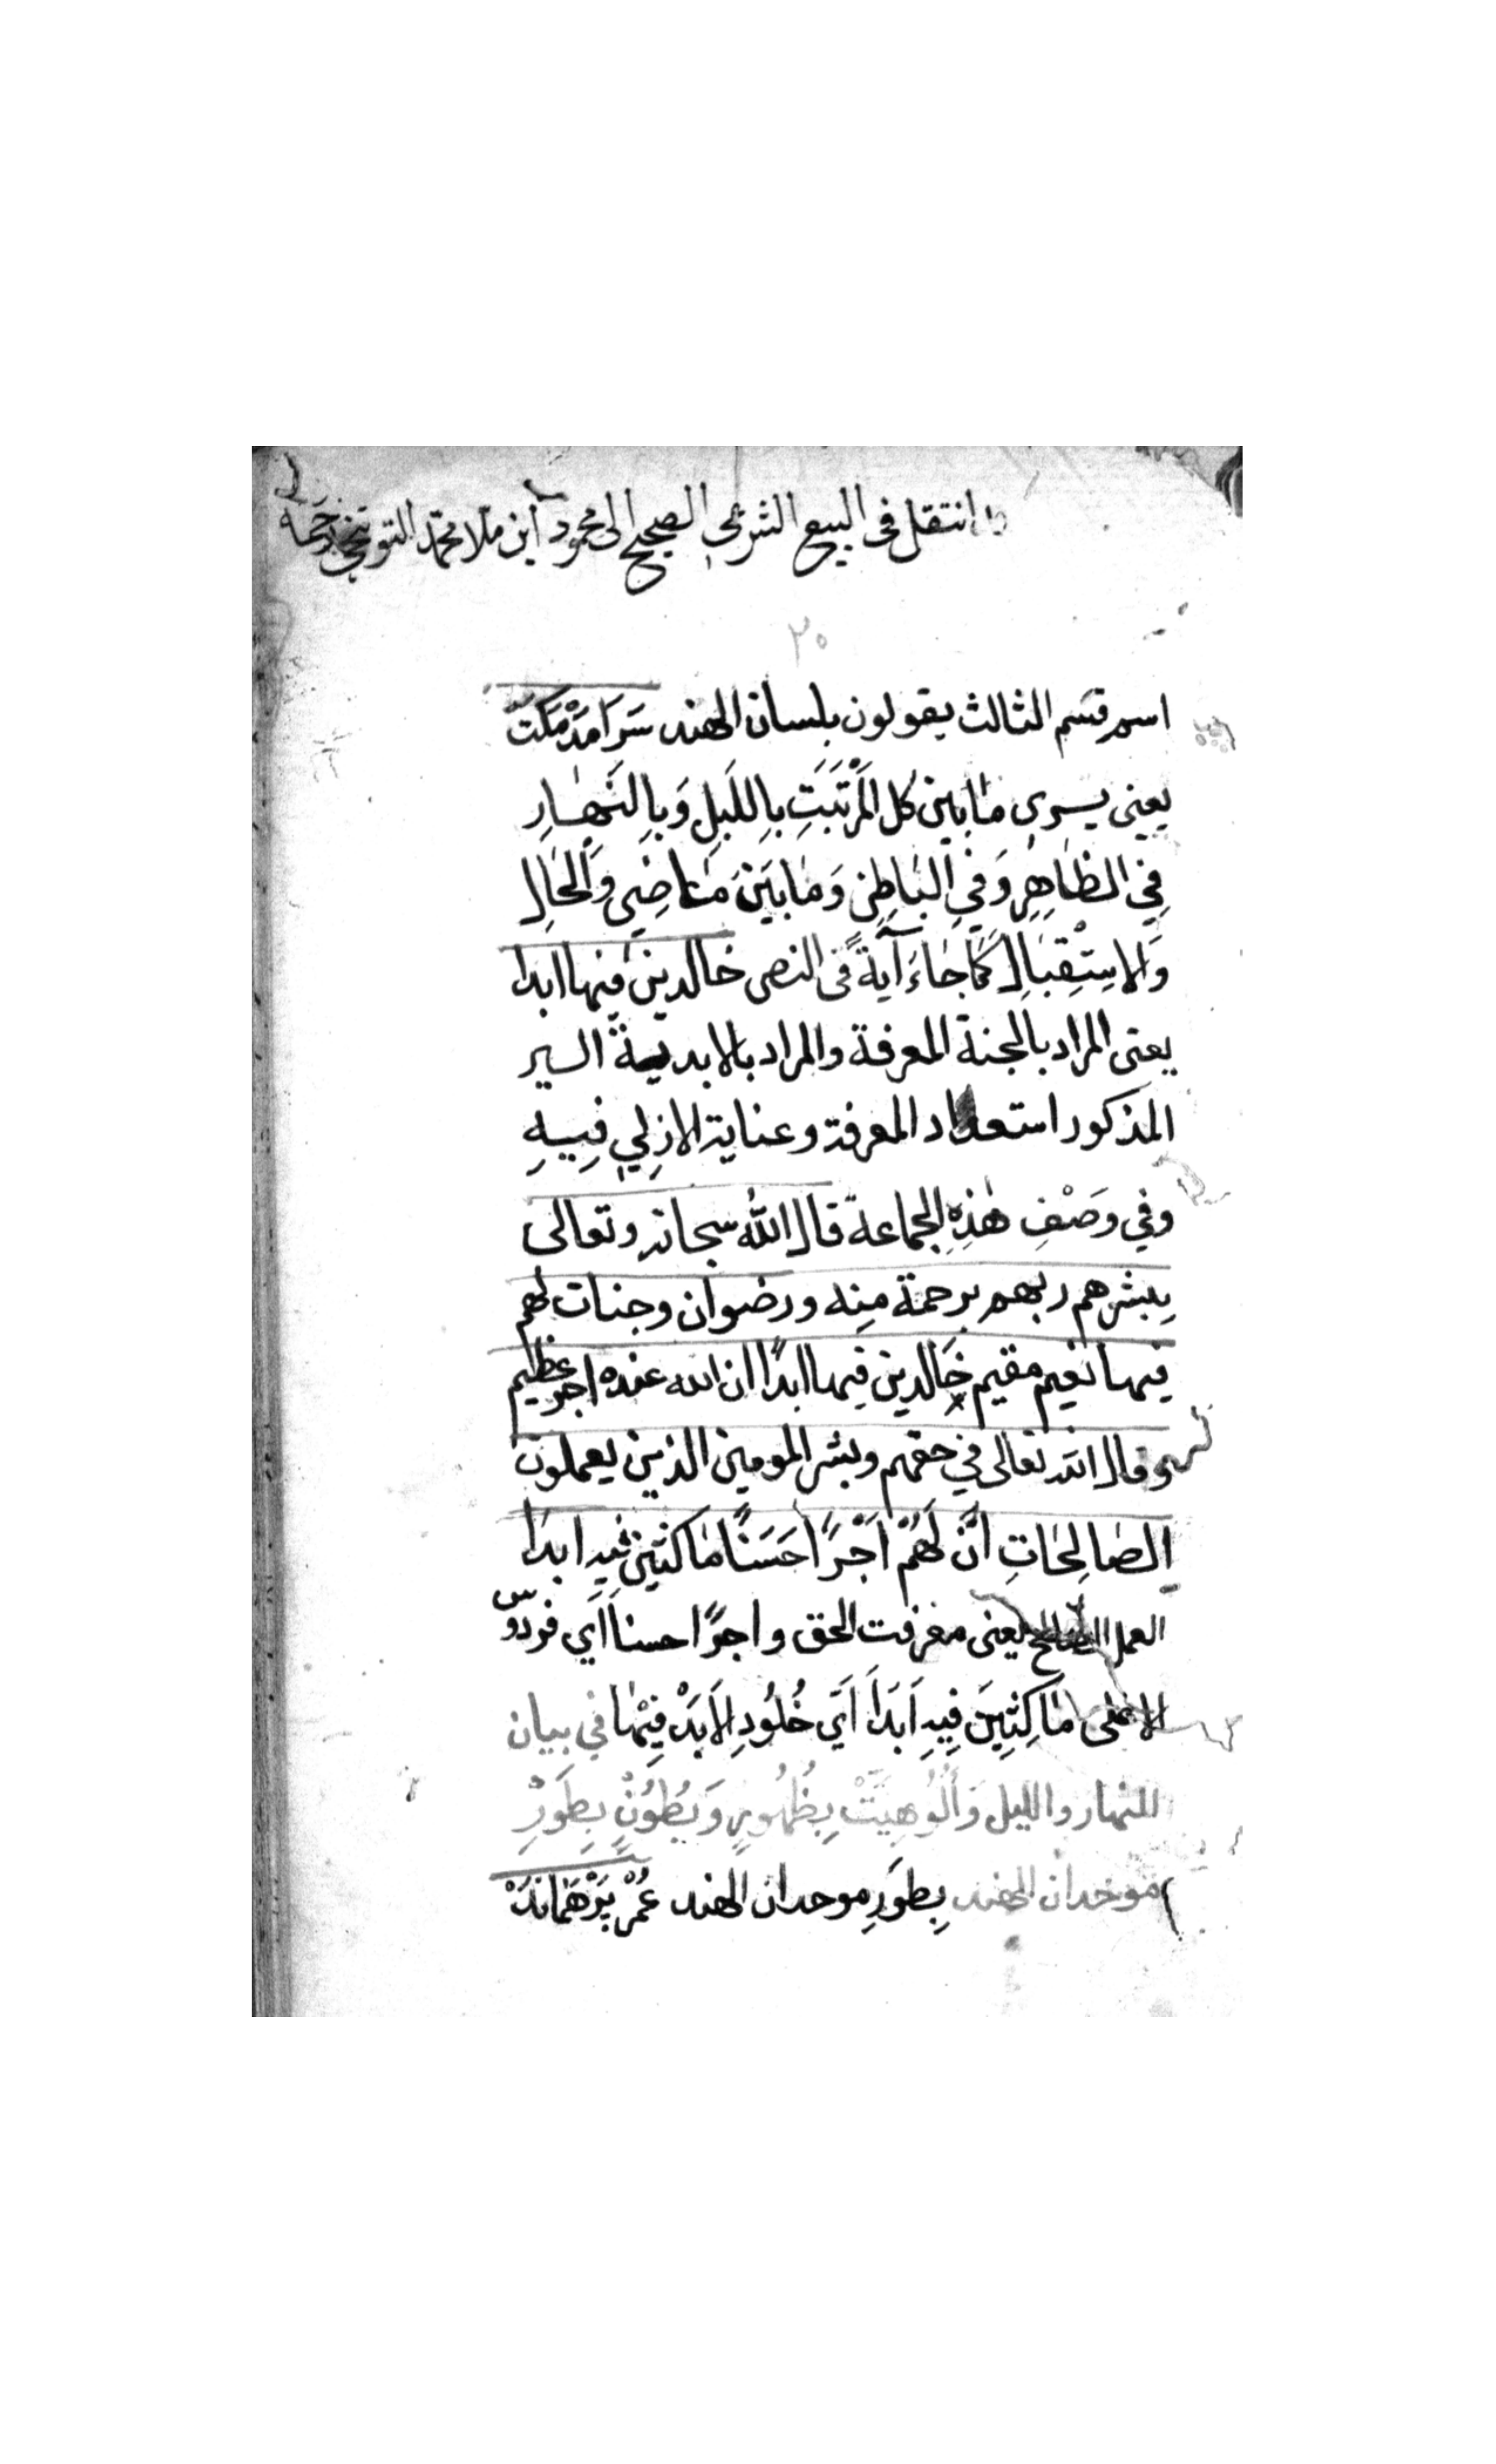 انتقل فى البيع الشرعي الصحيح الى محمود ابن ملا محمد التوتنجى رحمه
٢٠
اسم قسم الثالث يقولون بلسان الهند سَرَامَدْمَكَتْ
يعنى يسرى مابين كل المَرْتَبَتِ بِاللَيلِ وَبِالنَهارِ
فِي الظاهِرِ وَفي الباطِنِ وَمابَيَنَ مَاضِي وَالحَالِ
وَالاسِتْقِبالِ كَمَا جاءَ آيَةً فى النص خالدين فيها ابدا
يعنى المراد بالجنة المعرفة والمراد بالابدية السير
المذكور استعداد المعرفة وعناية الازلي فِيهِ
وفي وصْفِ هٰذِهِ الجماعة قال اللّٰه سبحانه وتعالى
يبشرهم ربهم برحمة منه ورضوان وجنات لهم
فيها نعيم مقيم خالدين فيها ابدًا ان الله عنده اجر عظيم
وقال الله تعالى في حقهم وبشر المومنين الذين يعملون
الصالِحَاتِ انَّ لَهُمْ اَجْرًا حَسَنًا ماكثين فيه ابدا
العمل الصالح يعنى معرفت الحق واجرًا حسنا اَي فردوس
الاعلى ماكِثِينَ فِيهِ اَبَدَاً اَيَ خُلُودِ الاَبَدْ فِيْها في بيان
النهار والليل وَأُلُوُهِيَّتْ بِظُهُورٍ وَبُطُونٍ بِطَورِ
موحدان الهند بِطَورِ موحدان الهند عُمْر بَرْهَمانَدَتْ